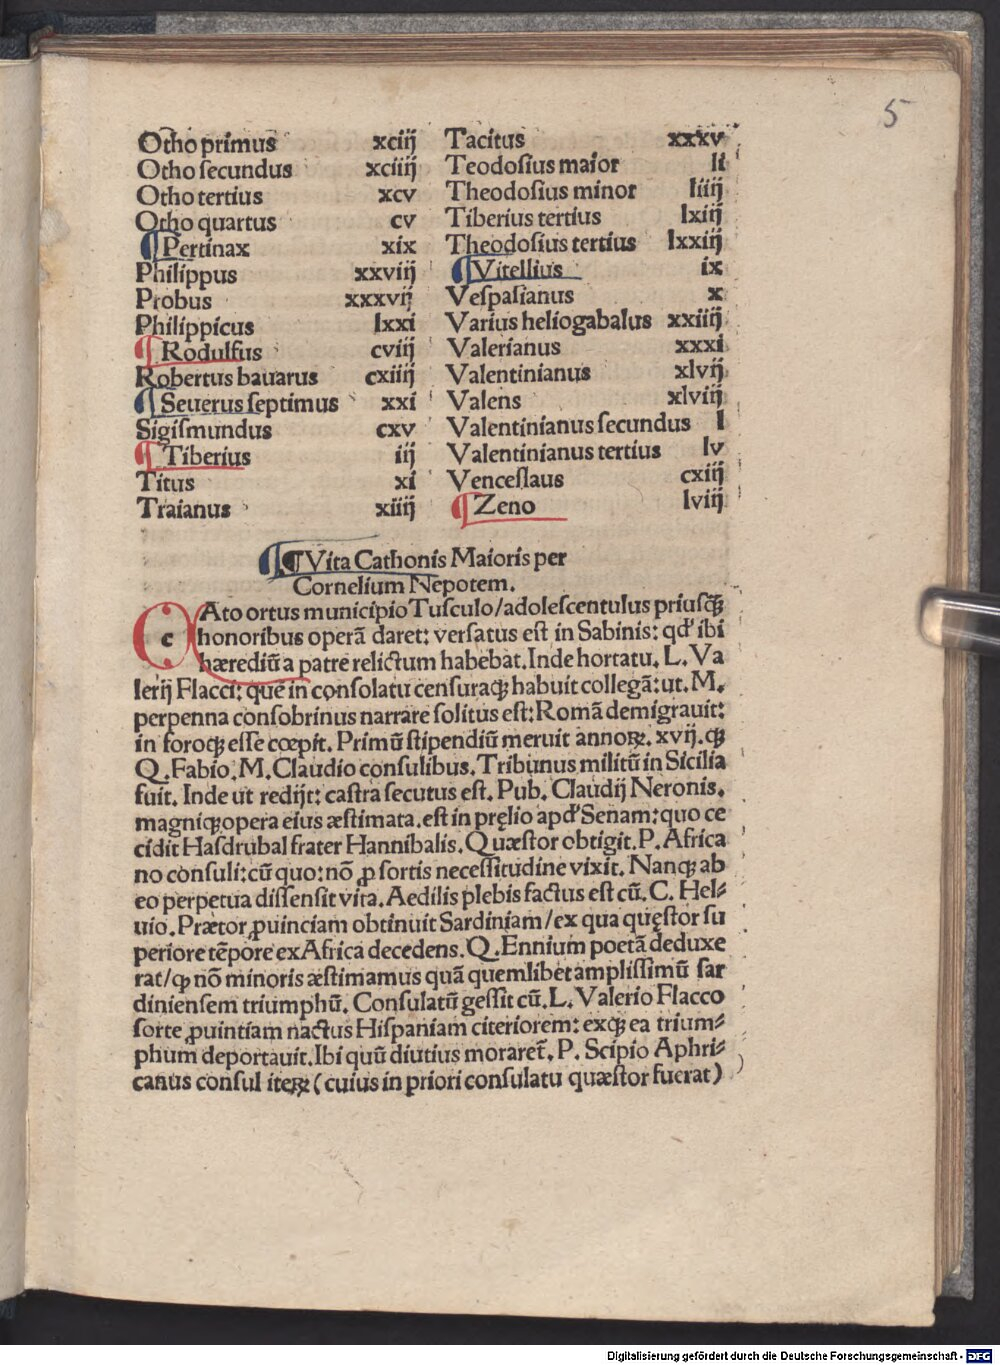 5
Otho primus xciij
Otho ſecundus xciiij
Otho tertius xcv
Otho quartus cv
¶Pertinax xix
Philippus xxviij
Probus xxxvij
Philippicus lxxi
¶Rodulfus cviij
Robertus bauarus cxiiij
¶Seuerus ſeptimus xxi
Sigiſmundus cxv
¶Tiberius iij
Titus xi
Traianus xiiij
Tacitus xxxv
Teodoſius maior li
Theodoſius minor liiij
Tiberius tertius lxiij
Theodoſius tertius lxxiij
¶Vitellius ix
Veſpaſianus x
Varius heliogabalus xxiiij
Valerianus xxxi
Valentinianus xlvij
Valens xlviij
Valentinianus ſecundus l
Valentinianus tertius lv
Venceſlaus cxiij
¶Zeno lviij
¶Vita Cathonis Maioris per
Cornelium Nepotem.
cAto ortus municipio Tuſculo/adoleſcentulus priuſqꝫ
honoribus operā daret: verſatus eſt in Sabinis: qđ ibi
hærediū a patre relictum habebat. Inde hortatu. L. Va
lerij Flacci: quē in conſolatu cenſuraqꝫ habuit collegā: ut. M.
perpenna conſobrinus narrare ſolitus eſt: Romā demigrauit:
in foroqꝫ eſſe cœpit. Primū ſtipendiū meruit annoꝝ. xvij. qꝫ
Q. Fabio. M. Claudio conſulibus. Tribunus militū in Sicilia
fuit. Inde ut redijt: caſtra ſecutus eſt. Pub. Claudij Neronis.
magniqꝫ opera eius æſtimata. eſt in pręlio apđ Senam: quo ce
cidit Haſdrubal frater Hannibalis. Quæſtor obtigit. P. Africa
no conſuli: cū quo: nō ꝓ ſortis neceſſitudine vixit. Nanqꝫ ab
eo perpetua diſſenſit vita. Aedilis plebis factus eſt cū. C. Hel⸗
uio. Prætor ꝓuinciam obtinuit Sardiniam/ex qua quęſtor ſu
periore tēpore ex Africa decedens. Q. Ennium poetā deduxe
rat/qꝫ nō minoris æſtimamus quā quemlibet ampliſſimū ſar
dinienſem triumphū. Conſulatū geſſit cū. L. Valerio Flacco
ſorte ꝓuintiam nactus Hiſpaniam citeriorem: exqꝫ ea trium⸗
phum deportauit. Ibi quū diutius moraret̄. P. Scipio Aphri⸗
canus conſul iteꝝ (cuius in priori conſulatu quæſtor fuerat)
Digitalisierung gefördert durch die Deutsche Forschungsgemeinschaft - DFG